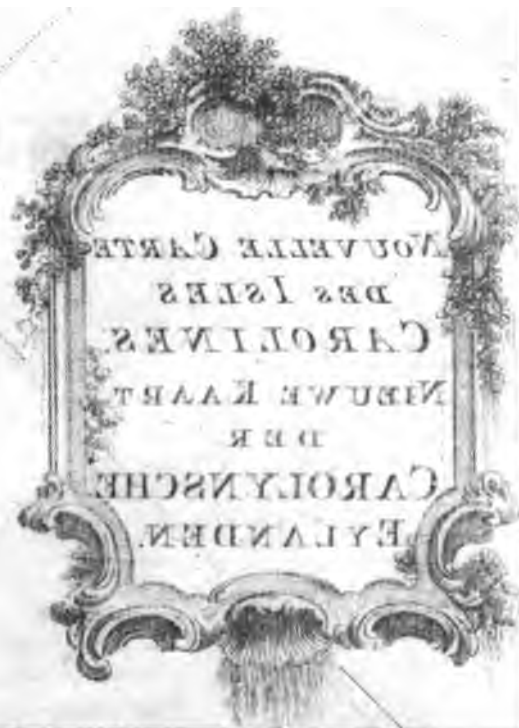 NOUVELLE CARTE
DES ISLES
CAROLINES.
NIEUWE KAART
DER
CAROLYNSCHE
EYLANDEN.